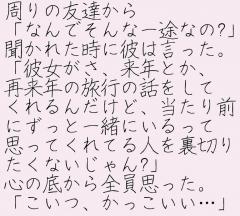 周りの友達から
「なんでそんな一途なの?」
聞かれた時に彼は言った。
「彼女がさ、来年とか、
再来年の旅行の話をして
くれるんだけど、当たり前
にずっと一緒にいるって
思ってくれてる人を裏切り
たくないじゃん?」
心の底から全員思った。
「こいつ、かっこいい…」